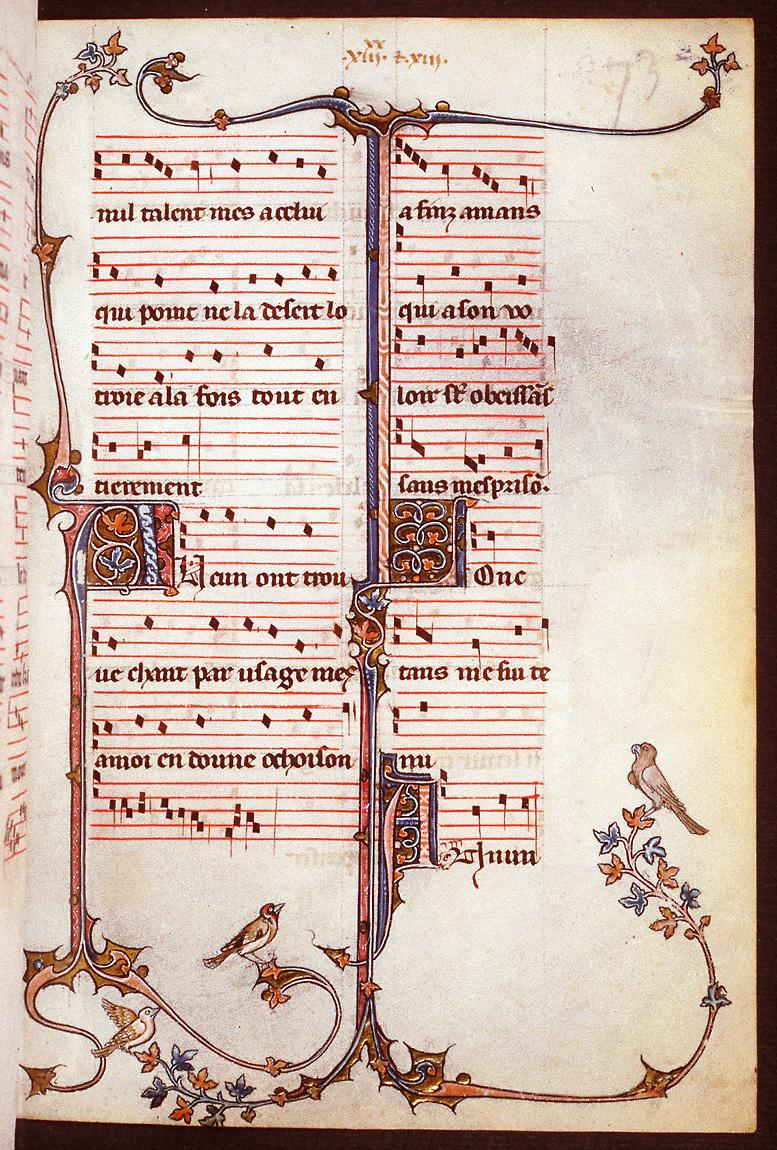 xx
·xiii· & xiii·
273
nul talent mes a celui
qui point ne la desert lo
troie a la fois tout en
tierement
Aucun ont trou
ue chant par usage mes
amoi en doune ochoison
a finz amans
qui a son vo
loir st obeissãt
sans mesprisõ·
Lonc
tans me sui te
nu
Annun